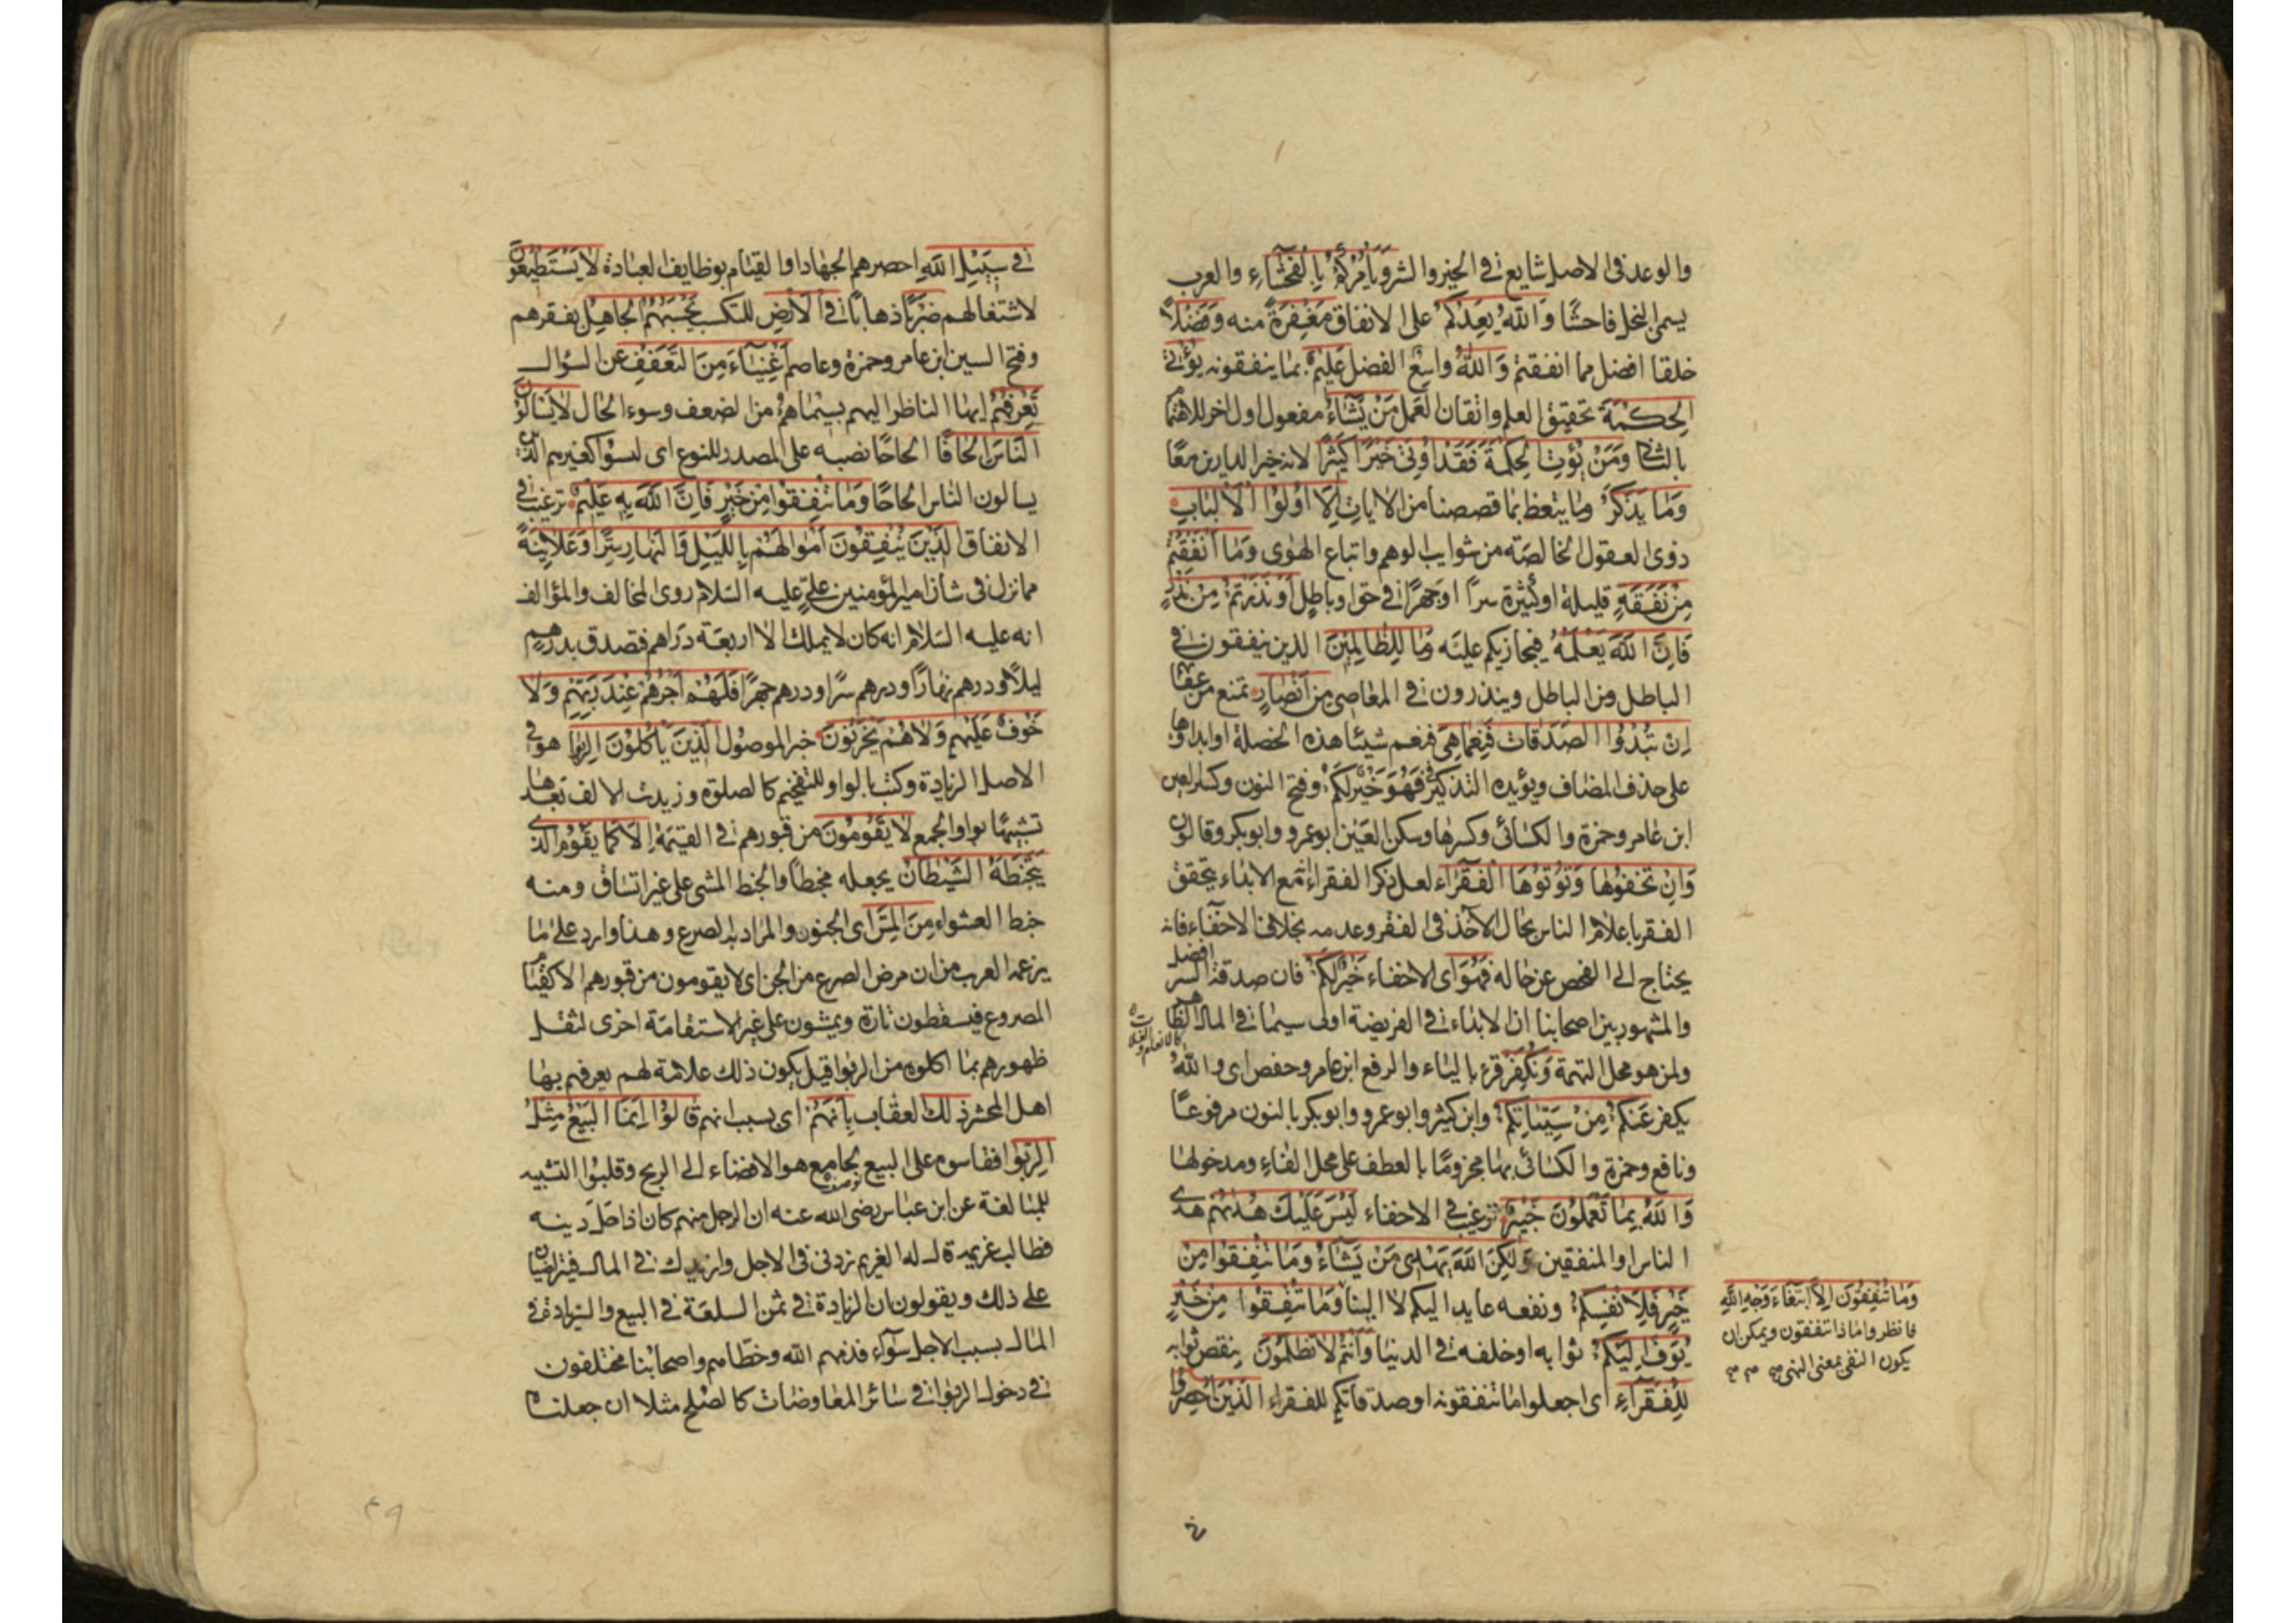 والوعد فى الاصل شايع فى الخير والشر وَيَأْمُرُكُمْ بِالْفَحْشَاءِ والعرب
يسمى البخل فاحشًا وَاللّٰهُ يَعِدُكُمْ على الانفاق مَغْفِرَةً منه وَفَضْلًا
خلقا افضل مما انفقتم وَاللّٰهُ وَاسِعٌ الفضل عَلِيمٌ بما ينفقونه يُؤْتِى
الْحِكْمَةَ تحقيق العلم واتقان العمل مَنْ يَشَاءُ مفعول اول اخر للاهتمام
بالثانى وَمَنْ يُؤْتَ الْحِكْمَةَ فَقَدْ اُوتِىَ خَيْرًا كَثِيرًا لانه خير الدارين معًا
وَمَا يَذَّكَّرُ وما يتعظ بما قصصنا من الايات اِلَّا اُولُوا الْاَلْبَابِ
ذوى العقول الخالصة من شوايب الوهم واتباع الهوى وَمَا اَنْفَقْتُمْ
مِنْ نَفَقَةٍ قليلة او كثيرة سرًا او جهرًا فى حق او باطل اَوْ نَذَرْتُمْ مِنْ نَذْرٍ
فَاِنَّ اللّٰهَ يَعْلَمُهُ فيجازيكم عليه وَمَا لِلظَّالِمِينَ الذين ينفقون فى
الباطل ومن الباطل وينذرون فى المعاصى مِنْ اَنْصَارٍ تمنع من عقابه
اِنْ تُبْدُوا الصَّدَقَاتِ فَنِعِمَّا هِىَ فنعم شيئا هذه الخصلة او ابداؤها
على حذف المضاف ويؤيده التذكير فى فَهُوَ خَيْرٌ لَكُمْ وفتح النون وكسر العين
ابن عامر وحمزة والكسائى وكسرها وسكن العين ابو عمرو وابو بكر وقالون
وَاِنْ تُخْفُوهَا وَتُؤْتُوهَا الْفُقَرَاءَ لعل ذكر الفقراء ثمع الابداء يتحقق
الفقر باعلام الناس بحال الآخذ فى الفقر وعدمه بخلاف الاخفاء فانه
يحتاج الى الفحص عن حاله فَهُوَ اى الاخفاء خَيْرٌ لَكُمْ فان صدقة السر افضل
والمشهور بين اصحابنا ان الابداء فى الفريضة اولى سيما فى المال الظاهر
كالانعام والغلات
ولمن هو محل التهمة وَنُكَفِّرُ قرء بالياء والرفع ابن عامر وحفص اى والله
يكفر عَنْكُمْ مِنْ سَيِّئَاتِكُمْ وابن كثير وابو عمرو وابو بكر بالنون مرفوعًا
ونافع وحمزة والكسائى بها مجزومًا بالعطف على محل الفاء ومدخولها
وَاللّٰهُ بِمَا تَعْمَلُونَ خَبِيرٌ ترغيب فى الاخفاء لَيْسَ عَلَيْكَ هُدٰيهُمْ هدى
الناس او المنفقين وَلٰكِنَّ اللّٰهَ يَهْدِى مَنْ يَشَاءُ وَمَا تُنْفِقُوا مِنْ
خَيْرٍ فَلِاَنْفُسِكُمْ ونفعه عايد اليكم لا الينا وَمَا تُنْفِقُوا مِنْ خَيْرٍ
يُوَفَّ اِلَيْكُمْ ثوابه او خلفه فى الدنيا وَاَنْتُمْ لَا تُظْلَمُونَ بنقص ثوابه
لِلْفُقَرَآءِ اى اجعلوا ما تنفقونه او صدقاتكم للفقراء الَّذِينَ اُحْصِرُوا
وَمَا تُنْفِقُونَ اِلَّا ابْتِغَاءَ وَجْهِ اللّٰهِ
فانظروا ماذا تنفقون ويمكن ان
يكون النفى بمعنى النهى
فى سَبِيلِ اللّٰهِ احصرهم الجهاد او القيام بوظايف العبادة لَا يَسْتَطِيعُونَ
لاشتغالهم ضَرْبًا ذهابًا فِى الْاَرْضِ للتكسب يَحْسَبُهُمُ الْجَاهِلُ بفقرهم
وفتح السين ابن عامر وحمزة وعاصم اَغْنِيَآءَ مِنَ التَّعَفُّفِ عن السؤال
تَعْرِفُهُمْ ايها الناظر اليهم بِسِيمَاهُمْ من الضعف وسوء الحال لَا يَسْاَلُونَ
النَّاسَ اِلْحَافًا الحاحًا نصبه على المصدر للنوع اى ليسوا كغيرهم الذين
يسالون الناس الحاحًا وَمَا تُنْفِقُوا مِنْ خَيْرٍ فَاِنَّ اللّٰهَ بِهِ عَلِيمٌ ترغيب فى
الانفاق اَلَّذِينَ يُنْفِقُونَ اَمْوَالَهُمْ بِاللَّيْلِ وَالنَّهَارِ سِرًّا وَعَلَانِيَةً
مما نزل فى شان امير المؤمنين على عليه السلام روى المخالف والمؤالف
انه عليه السلام انه كان لا يملك الا اربعة دراهم فتصدق بدرهم
ليلًا ودرهم نهارًا ودرهم سرًا ودرهم جهرًا فَلَهُمْ اَجْرُهُمْ عِنْدَ رَبِّهِمْ وَلَا
خَوْفٌ عَلَيْهِمْ وَلَا هُمْ يَحْزَنُونَ خبر الموصول اَلَّذِينَ يَاْكُلُونَ الرِّبٰوا هو فى
الاصل الزيادة وكتب بالواو للتفخيم كالصلوة وزيدت الالف بعدها
تشبيهًا بواو الجمع لَا يَقُومُونَ من قبورهم فى القيمة اِلَّا كَمَا يَقُومُ الَّذِى
يَتَخَبَّطُهُ الشَّيْطَانُ يجعله مخبطًا والخبط المشى على غير اتساق ومنه
خبط العشواء مِنَ الْمَسِّ اى الجنون والمراد به الصرع وهذا وارد على ما
يزعمه العرب من ان مرض الصرع من الجن اى لا يقومون من قبورهم الا كقيام
المصروع فيسقطون تارة ويمشون على غير الاستقامة اخرى لثقل
ظهورهم بما اكلوه من الربوا قيل يكون ذلك علامة لهم يعرفهم بها
اهل المحشر ذٰلِكَ العقاب بِاَنَّهُمْ اى بسبب انهم قَالُوا اِنَّمَا الْبَيْعُ مِثْلُ
الرِّبٰوا فقاسوه على البيع بجامع هو الافضاء الى الربح وقلبوا التشبيه
للمبالغة عن ابن عباس رضى الله عنه ان الرجل منهم كان اذا حل دينه
فطالب غريمه قال له الغريم زدنى فى الاجل وازيدك فى المال فيتراضيان
على ذلك ويقولون ان الزيادة فى ثمن السلعة فى البيع والزيادة فى
المال بسبب الاجل سوآء فذمهم الله وخطاهم واصحابنا مختلفون
فى دخول الربوا فى سائر المعاوضات كالصلح مثلا ان جعلناه
٤٩